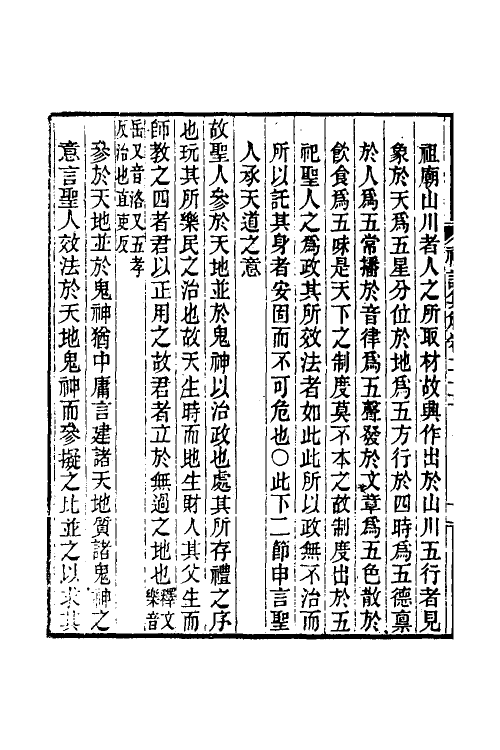 祖廟山川者人之所取材故興作出於山川五行者見
象於天爲五星分位於地爲五方行於四時爲五德稟
於人爲五常播於音律爲五聲發於文章爲五色散於
飲食爲五味是天下之制度莫不本之故制度出於五
祀聖人之爲政其所效法者如此此所以政無不治而
所以託其身者安固而不可危也〇此下二節申言聖
人承天道之意
故聖人參於天地並於鬼神以治政也處其所存禮之序
也玩其所樂民之治也故天生時而地生財人其父生而
師教之四者君以正用之故君者立於無過之地也釋文樂音
岳又音洛又五孝
反治也直吏反
參於天地並於鬼神猶中庸言建諸天地質諸鬼神之
意言聖人效法於天地鬼神而參擬之比並之以求其